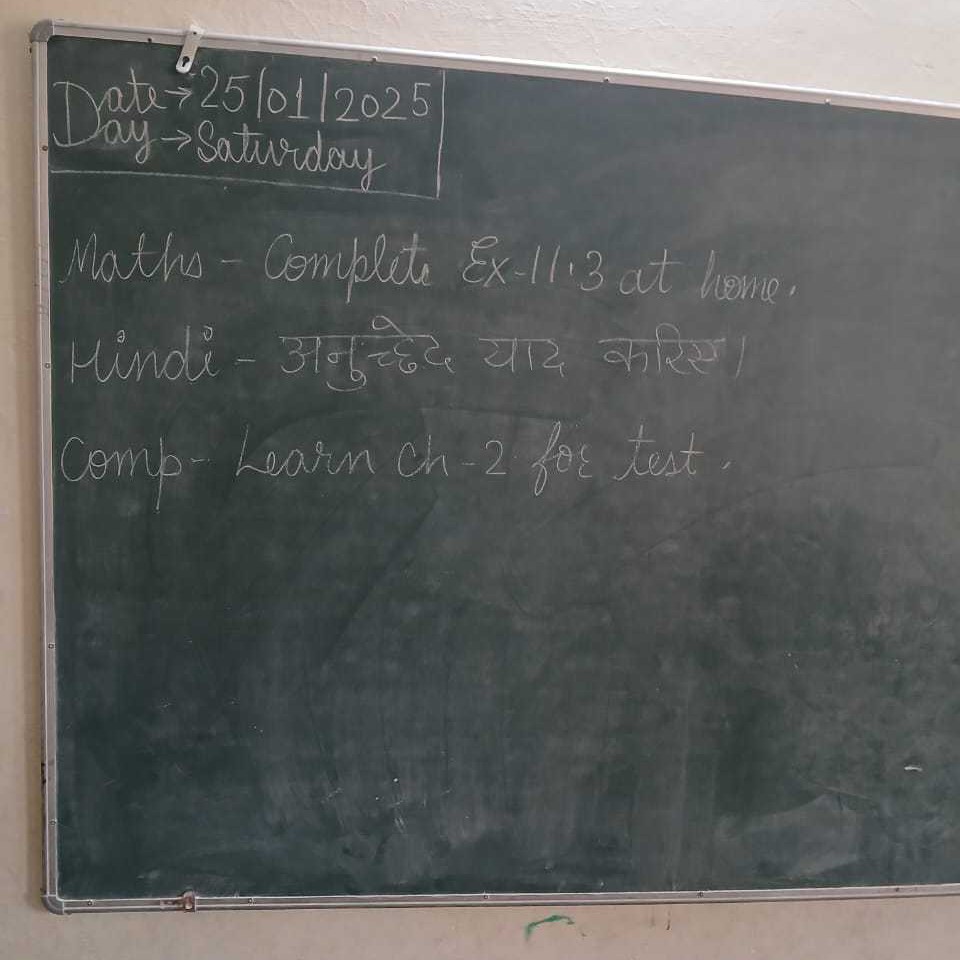 Date → 25/01/2025
Day → Saturday
Maths - Complete Ex-11.3 at home.
Hindi - अनुच्छेद याद करिए।
Comp - Learn ch-2 for test.